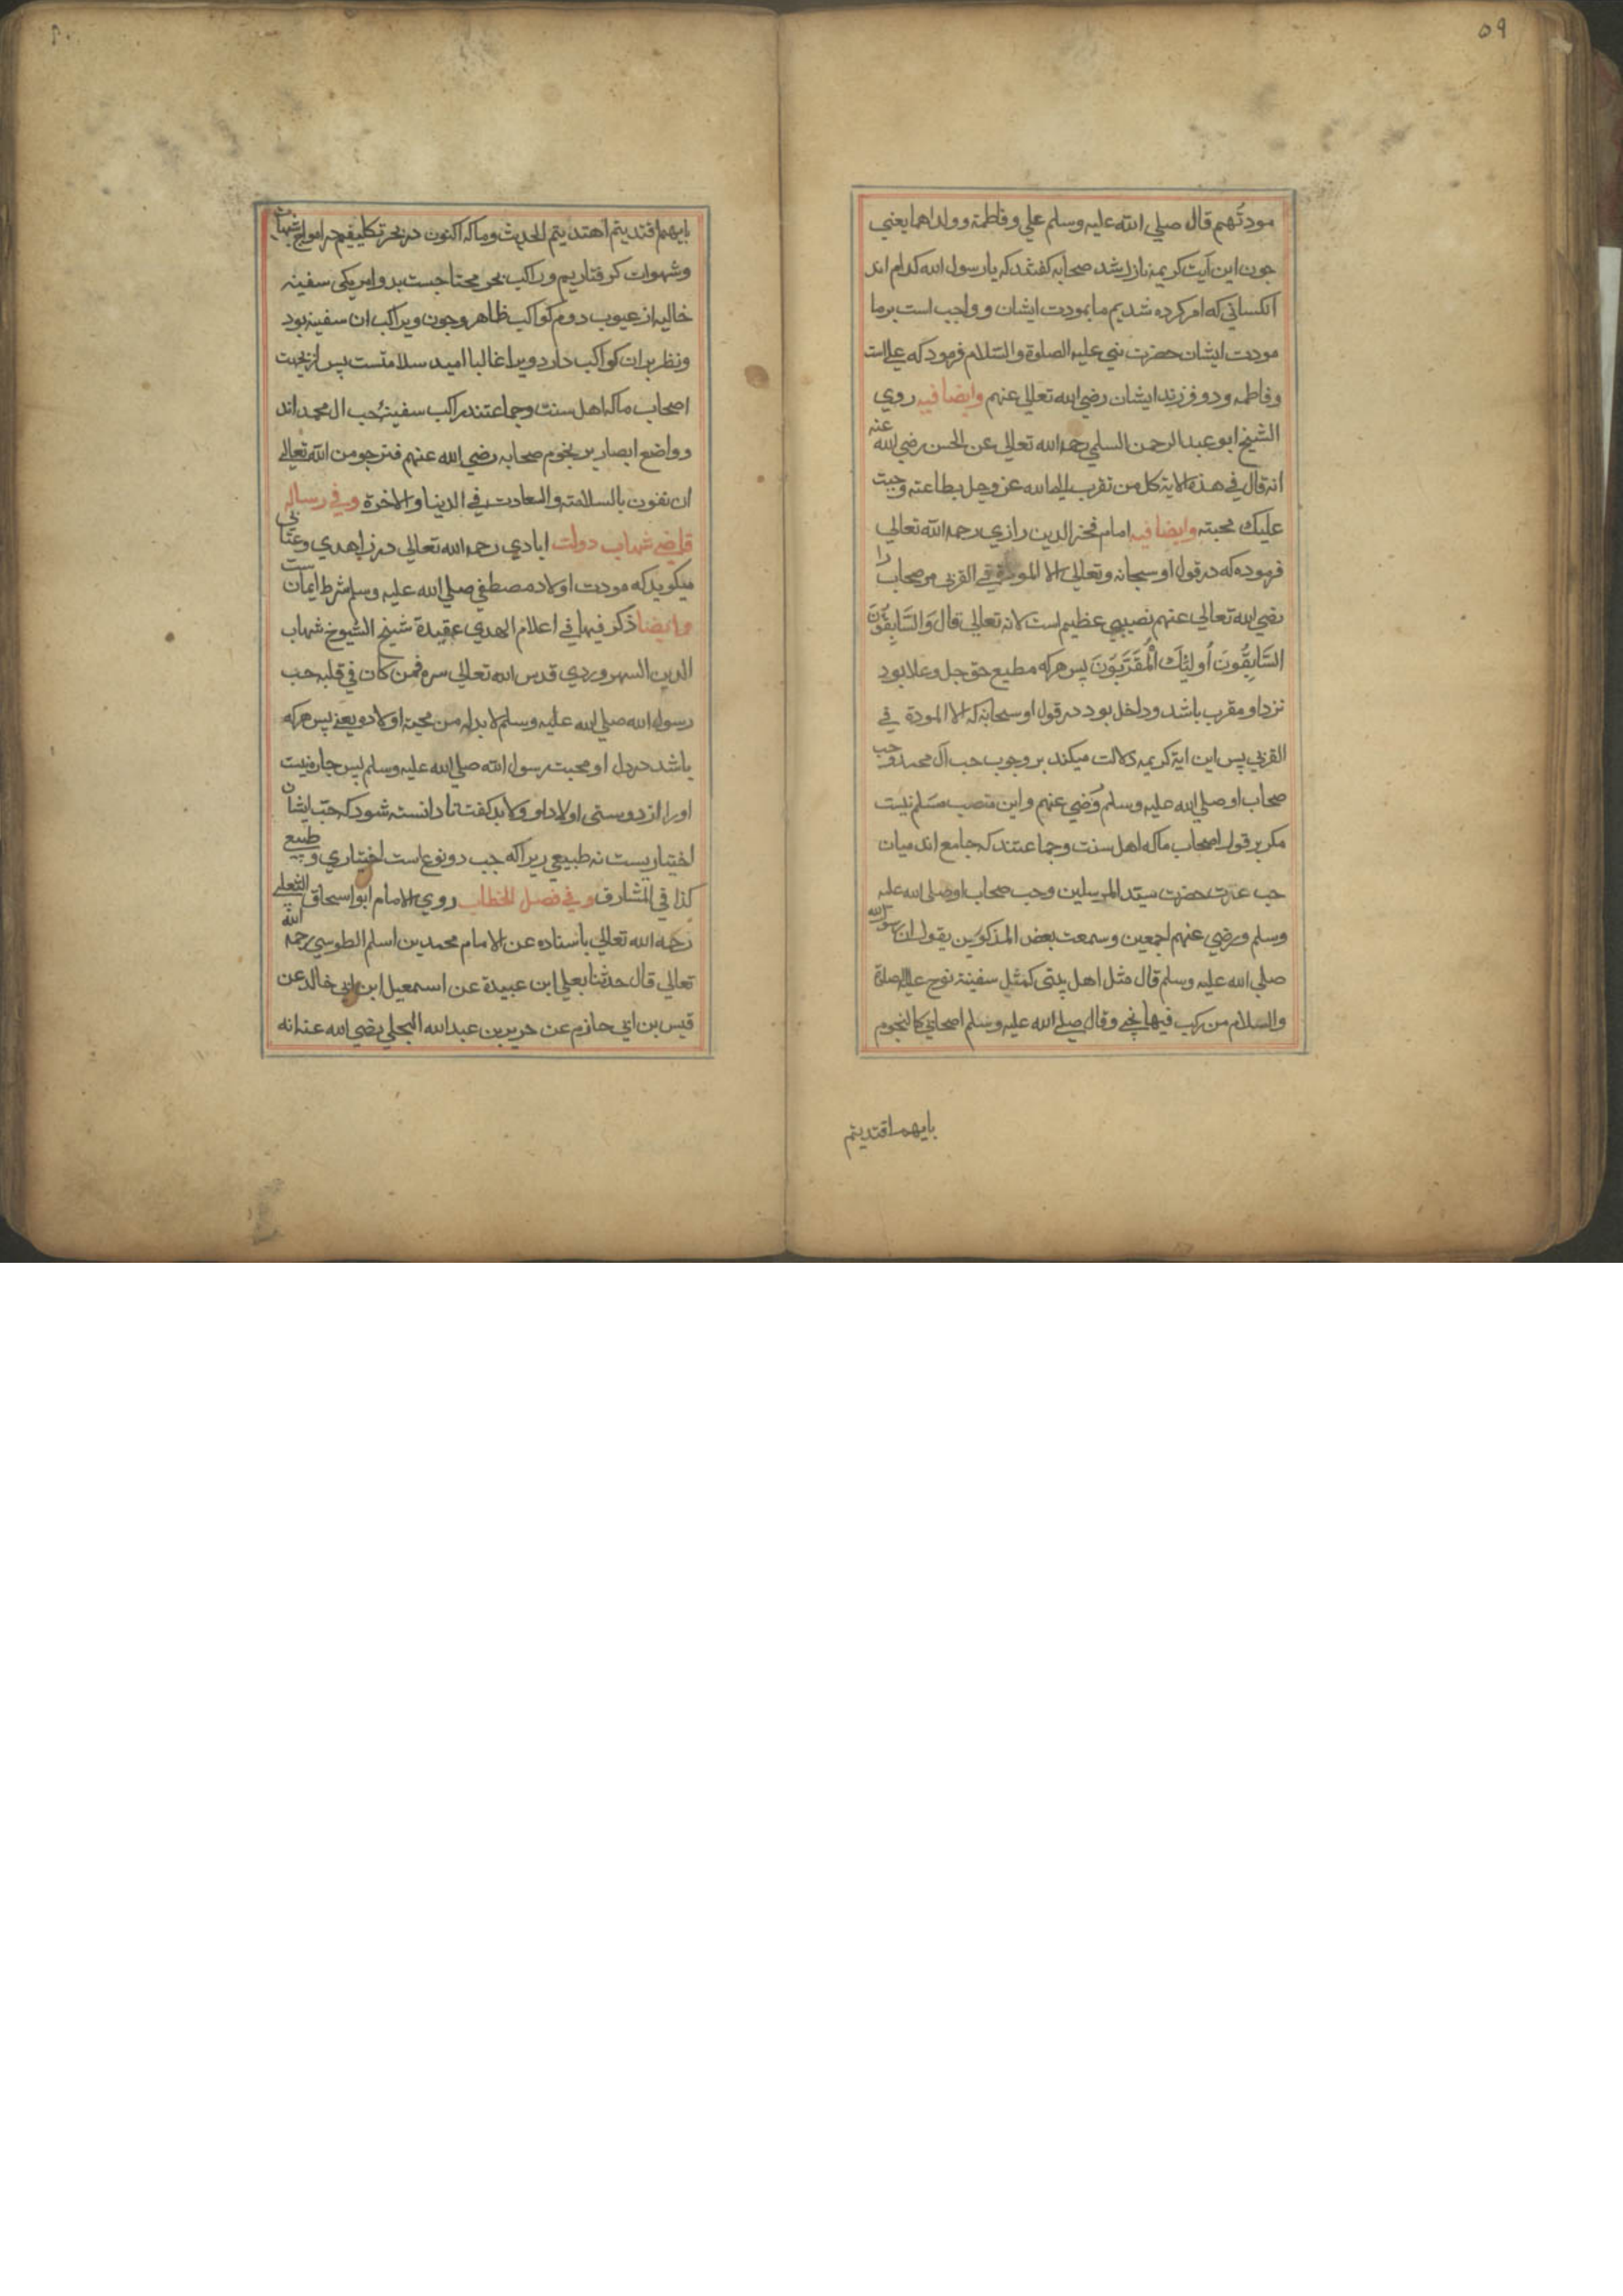 ۵۹
مودتهم قال صلي الله عليه وسلم علي وفاطمة وولداهما يعني
جون اين آيت كريمه نازل شد صحابه كفتند كه يا رسول الله كدام اند
آنكساني كه امر كرده شديم ما بمودت ايشان و واجب است بر ما
مودت ايشان حضرت نبي عليه الصلوة والسّلام فرمود كه علي است
وفاطمه ودو فرزند ايشان رضي الله تعالي عنهم وايضا فيه روي
الشيخ ابو عبد الرحمن السلمي رحمه الله تعالي عن الحسن رضي الله عنه
انه قال في هذه الاية كل من تقرب الي الله عز وجل بطاعته وجبت
عليك محبته وايضا فيه امام فخر الدين رازي رحمه الله تعالي
فرموده كه در قول او سبحانه وتعالي الا المودة في القربي مر صحاب را
رضي الله تعالي عنهم نصيبي عظيم است لانه تعالي قال وَالسَّابِقُونَ
السَّابِقُونَ أُولئِكَ الْمُقَرَّبُونَ پس هركه مطيع حق جل وعلا بود
نزد او مقرب باشد وداخل بود در قول او سبحانه كه الا المودة في
القربي پس اين اية كريمه دلالت ميكند بر وجوب حب آل محمد وحب
صحاب او صلي الله عليه وسلم ورضي عنهم واين منصب مسلم نيست
مكر بر قول اصحاب ما كه اهل سنت وجماعتند كه جامع اند ميان
حب عترت حضرت سيّد المرسلين وحب صحاب او صلي الله عليه
وسلم ورضي عنهم اجمعين وسمعت بعض المذكورين يقول ان رسول الله
صلي الله عليه وسلم قال مثل اهل بيتي كمثل سفينة نوح عليه الصلاة
والسلام من ركب فيها نجي وقال صلي الله عليه وسلم اصحابي كالنجوم
بايهم اقتديتم
بايهم اقتديتم اهتديتم الحديث وما كه اكنون در بحر تكليفيم در امواج شبهات
وشهوات كرفتاريم وراكب بحر محتاجست بدو امر يكي سفينه
خاليه از عيوب دوم كواكب ظاهر وجون وي راكب ان سفينه بود
ونظر بران كواكب دارد ويرا غالبا اميد سلامتست پس ازينجهت
اصحاب ما كه اهل سنت وجماعتند راكب سفينه حب ال محمد اند
وواضع ابصار بر نجوم صحابه رضي الله عنهم فنرجو من الله تعالي
ان نفوز بالسلامة والسعادت في الدنيا والاخرة وفي رساله
قاضي شهاب دولت ابادي رحمه الله تعالي در زاهدي وعتابي
ميكويد كه مودت اولاد مصطفي صلي الله عليه وسلم شرط ايمان ست
وايضا ذكر فيها في اعلام الهدي عقيدة شيخ الشيوخ شهاب
الدين السهروردي قدس الله تعالي سره فمن كان في قلبه حب
رسول الله صلي الله عليه وسلم لا بد له من محبة اولاده يعني پس هركه
باشد در دل او محبت رسول الله صلي الله عليه وسلم پس جاره نيست
اورا از دوستي اولاد او ولابد كفت تا دانسته شود كه حب ايشان
اختياريست نه طبيعي زيرا كه حب دو نوع است اختياري وطبيعي
كذا في المشارق وفي فصل الخطاب روي الامام ابو اسحاق الثعلبي
رحمه الله تعالي باسناده عن الامام محمد بن اسلم الطوسي رحمه الله
تعالي قال حدثنا يعلي ابن عبيدة عن اسمعيل ابن ابي خالد عن
قيس بن ابي حازم عن جرير بن عبد الله البجلي رضي الله عنه انه